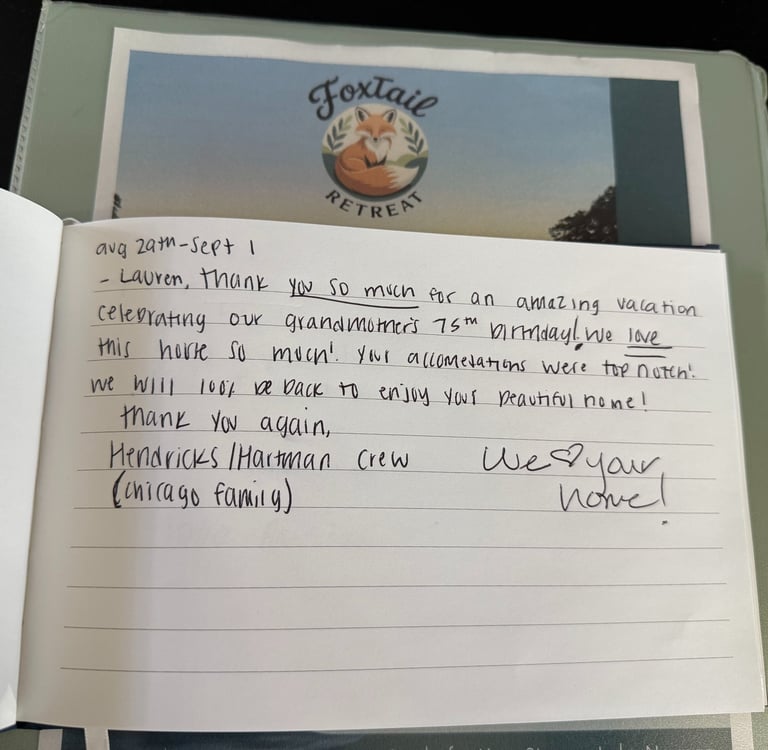 FoxTail
RETREAT
aug 29th - sept 1
- Lauren, thank you so much for an amazing vacation
celebrating our grandmother's 75th birthday! We love
this house so much! Your accomedations were top notch!
we will 100% be back to enjoy your beautiful home!
thank you again,
Hendricks/Hartman crew
(chicago family)
We ♡ your
home!